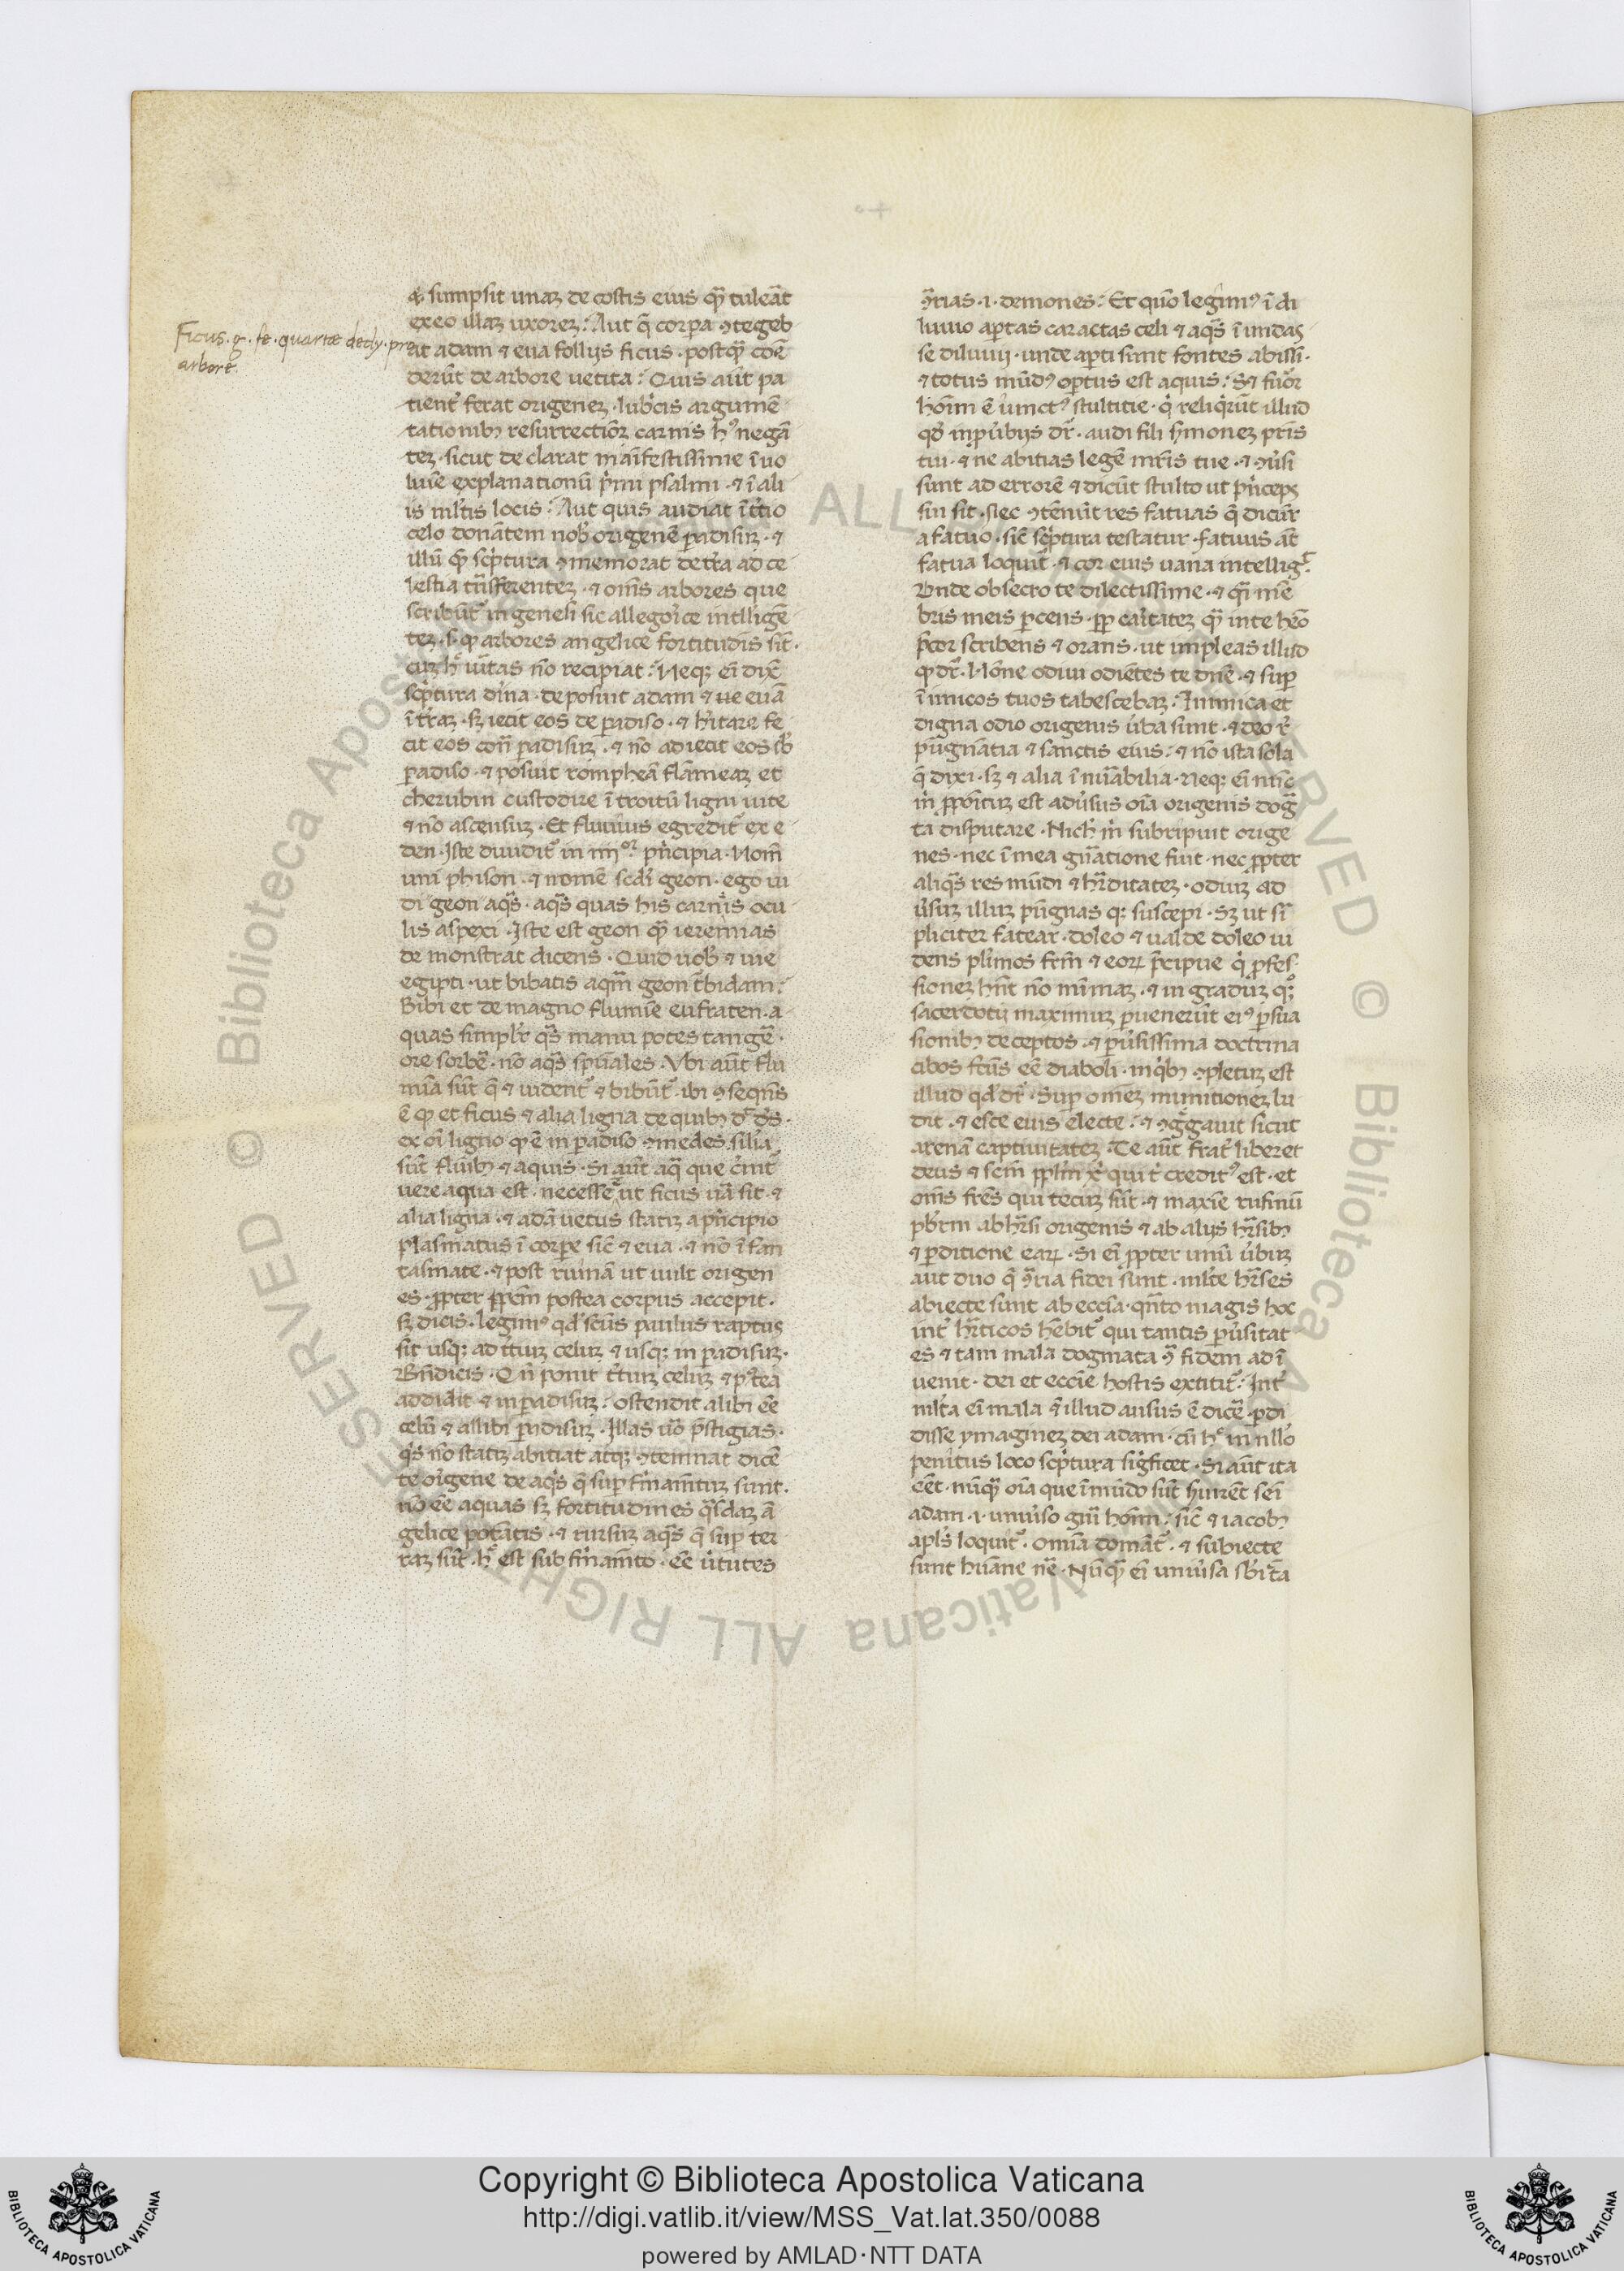 Ficus . g̅ . fe . quartæ decly . pro
arbore̅ .
& sumpsit unaz de costis eius qua̅ tuleat̅
ex eo illaz uxorez : Aut q̅ corpa ꝯtegeb
at adam ⁊ eua follijs ficus . postqua̅ come̅
deru̅t de arbore uetita : Quis aut̅ pa
tient' ferat origenez . lubricis argume̅
tationibꝫ resurrectio̅z carnis h' nega̅
tez . sicut declarat manifestissime i̅ uo
lui̅e explanationu̅ p̅mi psalmi . ⁊ i̅ ali
is ml'tis locis : Aut quis audiat i̅ t'tio
celo dona̅tem nob' origene̅ ꝑadisuz . ⁊
illu̅ que̅ sc'ptura ꝯmemorat de t'ra ad ce
lestia tra̅sferentez . ⁊ om̅s arbores que
scribu̅t' in genesi sic allegorice intllige̅
tez . s . ꝙ arbores angelice fortitudi̅s si̅t .
cuz h' uitas no̅ recipiat : Neqꝫ ei̅ dix̅
sc'ptura di'na . deposuit adam ⁊ eua̅
i̅ t'raz . sꝫ iecit eos de ꝑadiso . ⁊ h'itare fe
cit eos cont̅ ꝑadisuz . ⁊ no̅ adiecit eos sb'
ꝑadiso . ⁊ posuit romphea̅ fla̅meaz et
cherubin custodire i̅troitu̅ ligni uite
⁊ no̅ ascensuz . Et fluuius egredit' ex e
den . Iste diuidit' in iiijor p'ncipia . Nom̅
uni phison . ⁊ nome̅ scdi̅ geon . ego ui
di geon aq̅s . aq̅s quas his carnis ocu
lis aspexi . Iste est geon que̅ ieremias
demonstrat dicens . Quid uob' ⁊ uie
egipti . ut bibatis aqua̅ geon t'bidam :
Bibi et de magno flumi̅e eufraten . a
quas simpl'r q̅s manu potes tange̅ .
ore sorbe̅ . no̅ aq̅s sp̅uales . Vbi aut̅ flu
mi̅a su̅t q̅ ⁊ uident' ⁊ bibu̅t' . ibi ꝯseqns̅
e̅ ꝙ et ficus ⁊ alia ligna de quibꝫ d' d's .
ex o̅i ligno ꝙ e̅ in ꝑadiso ꝯmedes . si̅lia
su̅t flu̅ibꝫ ⁊ aquis . Si aut̅ aq̅ que c'nit'
uere aqua est . necesse ut ficus ua̅ sit . ⁊
alia ligna . ⁊ ada̅ uetus statiz a p'ncipio
plasmatus i̅ corpe sic̅ ⁊ eua . ⁊ no̅ i̅ fan
tasmate . ⁊ post ruina̅ ut uult origen
es . ꝓpter ꝓpcm̅ postea corpus accepit .
sꝫ dicis . legim' qd' sc̅us paulus raptus
sit usqꝫ ad t'tiuz celuz ⁊ usqꝫ in ꝑadisuz .
Bn̅ dicis . Qn̅ ponit t'tiuz celuz ⁊ p'tea
addidit ⁊ in ꝑadisuz : ostendit alibi e̅e
celu̅ ⁊ allibi ꝑadisuz . Illas u̅o p̅stigias .
q's no̅ statiz abiciat atqꝫ ꝯtemnat dice̅
te origene de aq̅s q̅ sup fi'mame̅tuz sunt .
no̅ e̅e aquas sꝫ fortitudines q̅sdaz a̅
gelice pota̅tis . ⁊ rursuz aq̅s q̅ sup ter
raz su̅t . h' est sub fi'mam̅to . e̅e u'tutes
ꝯ̅trias . i . demones : Et quo̅ legim' i̅ di
luuio aꝑtas caractas celi ⁊ aq̅s i̅undas
se diluuij . unde aꝑti sunt fontes abissi .
⁊ totus mu̅d' oꝑtus est aquis : S̅ꝫ furor
ho̅im e̅ iunct' stultitie . q̇ reliq̇ru̅t illud
qd' in ꝓu'bijs dr̅ . audi fili s'monez pr̅is
tui . ⁊ ne abicias lege̅ mr̅is tue . ⁊ ꝯu'si
sunt ad errore̅ ⁊ dicu̅t stulto ut p'nceps
sin̅ sit . Nec ꝯte̅nu̅t res fatuas q̅ dicu̅r
a fatuo . sic̅ sc'ptura testatur . fatuus at̅
fatua loquit' . ⁊ cor eius uana intellig't .
Unde obsecro te dilectissime . ⁊ q̅i me̅
bris meis ꝑcens . ꝓꝑ caritatez qua̅ in te heo̅
p̅cor scribens ⁊ orans . ut impleas illud
ꝙ dr̅ . No̅ne odiui odie̅tes te dn̅e . ⁊ sup
i̅imicos tuos tabescebaz : Inimica et
digna odio origenis u'ba sunt . ⁊ deo r̅
pu̅gna̅tia ⁊ sanctis eius : ⁊ no̅ ista sola
q̅ dixi . sꝫ ⁊ alia i̅nu̅abilia . Neqꝫ ei̅ nu̅c
m̅ ꝓpo̅ituz est adu'sus oi̅a origenis dog̅
ta disputare . Nich̅ m̅ subripuit orige
nes . nec i̅ mea gn̅atione fuit . nec ꝓpter
aliq̅s res mu̅di ⁊ hr̅ditatez . odiuz ad
u'suz illuz pu̅gnas qꝫ suscepi . Sꝫ ut si̅
pliciter fatear . doleo ⁊ ualde doleo ui
dens pl'imos fr̅m ⁊ eoꝝ p̅cipue q̇ ꝓfes
sionez hn̅t no̅ mi̅maz . ⁊ in graduz qꝫ
sacerdotij maximuz ꝑueneru̅t ei' ꝑsua
sionibꝫ deceptos . ⁊ ꝑu'sissima doctrina
cibos fc̅us e̅e diaboli . in q̇bꝫ ꝯpletuz est
illud qd' dr̅ . Sup omnez munitionez lu
dit . ⁊ esce eius electe : ⁊ ꝯg̅gauit sicut
arena̅ captiuitatez . Te aut̅ frat' liberet
deus ⁊ sc̅m ppl̅m x' qui t' credit' est . et
om̅s fr̅es qui tecuz su̅t . ⁊ maxi̅e rufinu̅
pb̅rm ab hr̅si origenis ⁊ ab alijs hr̅sibꝫ
⁊ ꝑditione eaꝝ . Si ei̅ ꝓpter unu̅ u'buz
aut duo q̅ ꝯ̅ria fidei sunt . ml'te hr̅ses
abiecte sunt ab ecci̅a . qn̅to magis hoc
int' hr̅ticos he̅bit' qui tantis ꝑu'sitat
es ⁊ tam mala dogmata ꝯ̅ fidem ad i̅
uenit . dei et ecci̅e hostis extitit : Int'
ml'ta ei̅ mala ⁊ illud ausus e̅ dice̅ . ꝑdi
disse ymaginez dei adam . cu̅ h' in nllo'
penitus loco sc'ptura sig̅ficet . Si aut̅ ita
e̅et . nu̅qua̅ oi̅a que i̅ mu̅do su̅t s'uire̅t se̅i
adam . i . uniu'so gn̅i ho̅im : sic̅ ⁊ iacobꝫ
apl's loquit' . omnia doma̅t' . ⁊ subiecte
sunt hu̅ane ne̅ . Nu̅qua̅ ei̅ uniu'sa sb̅icta